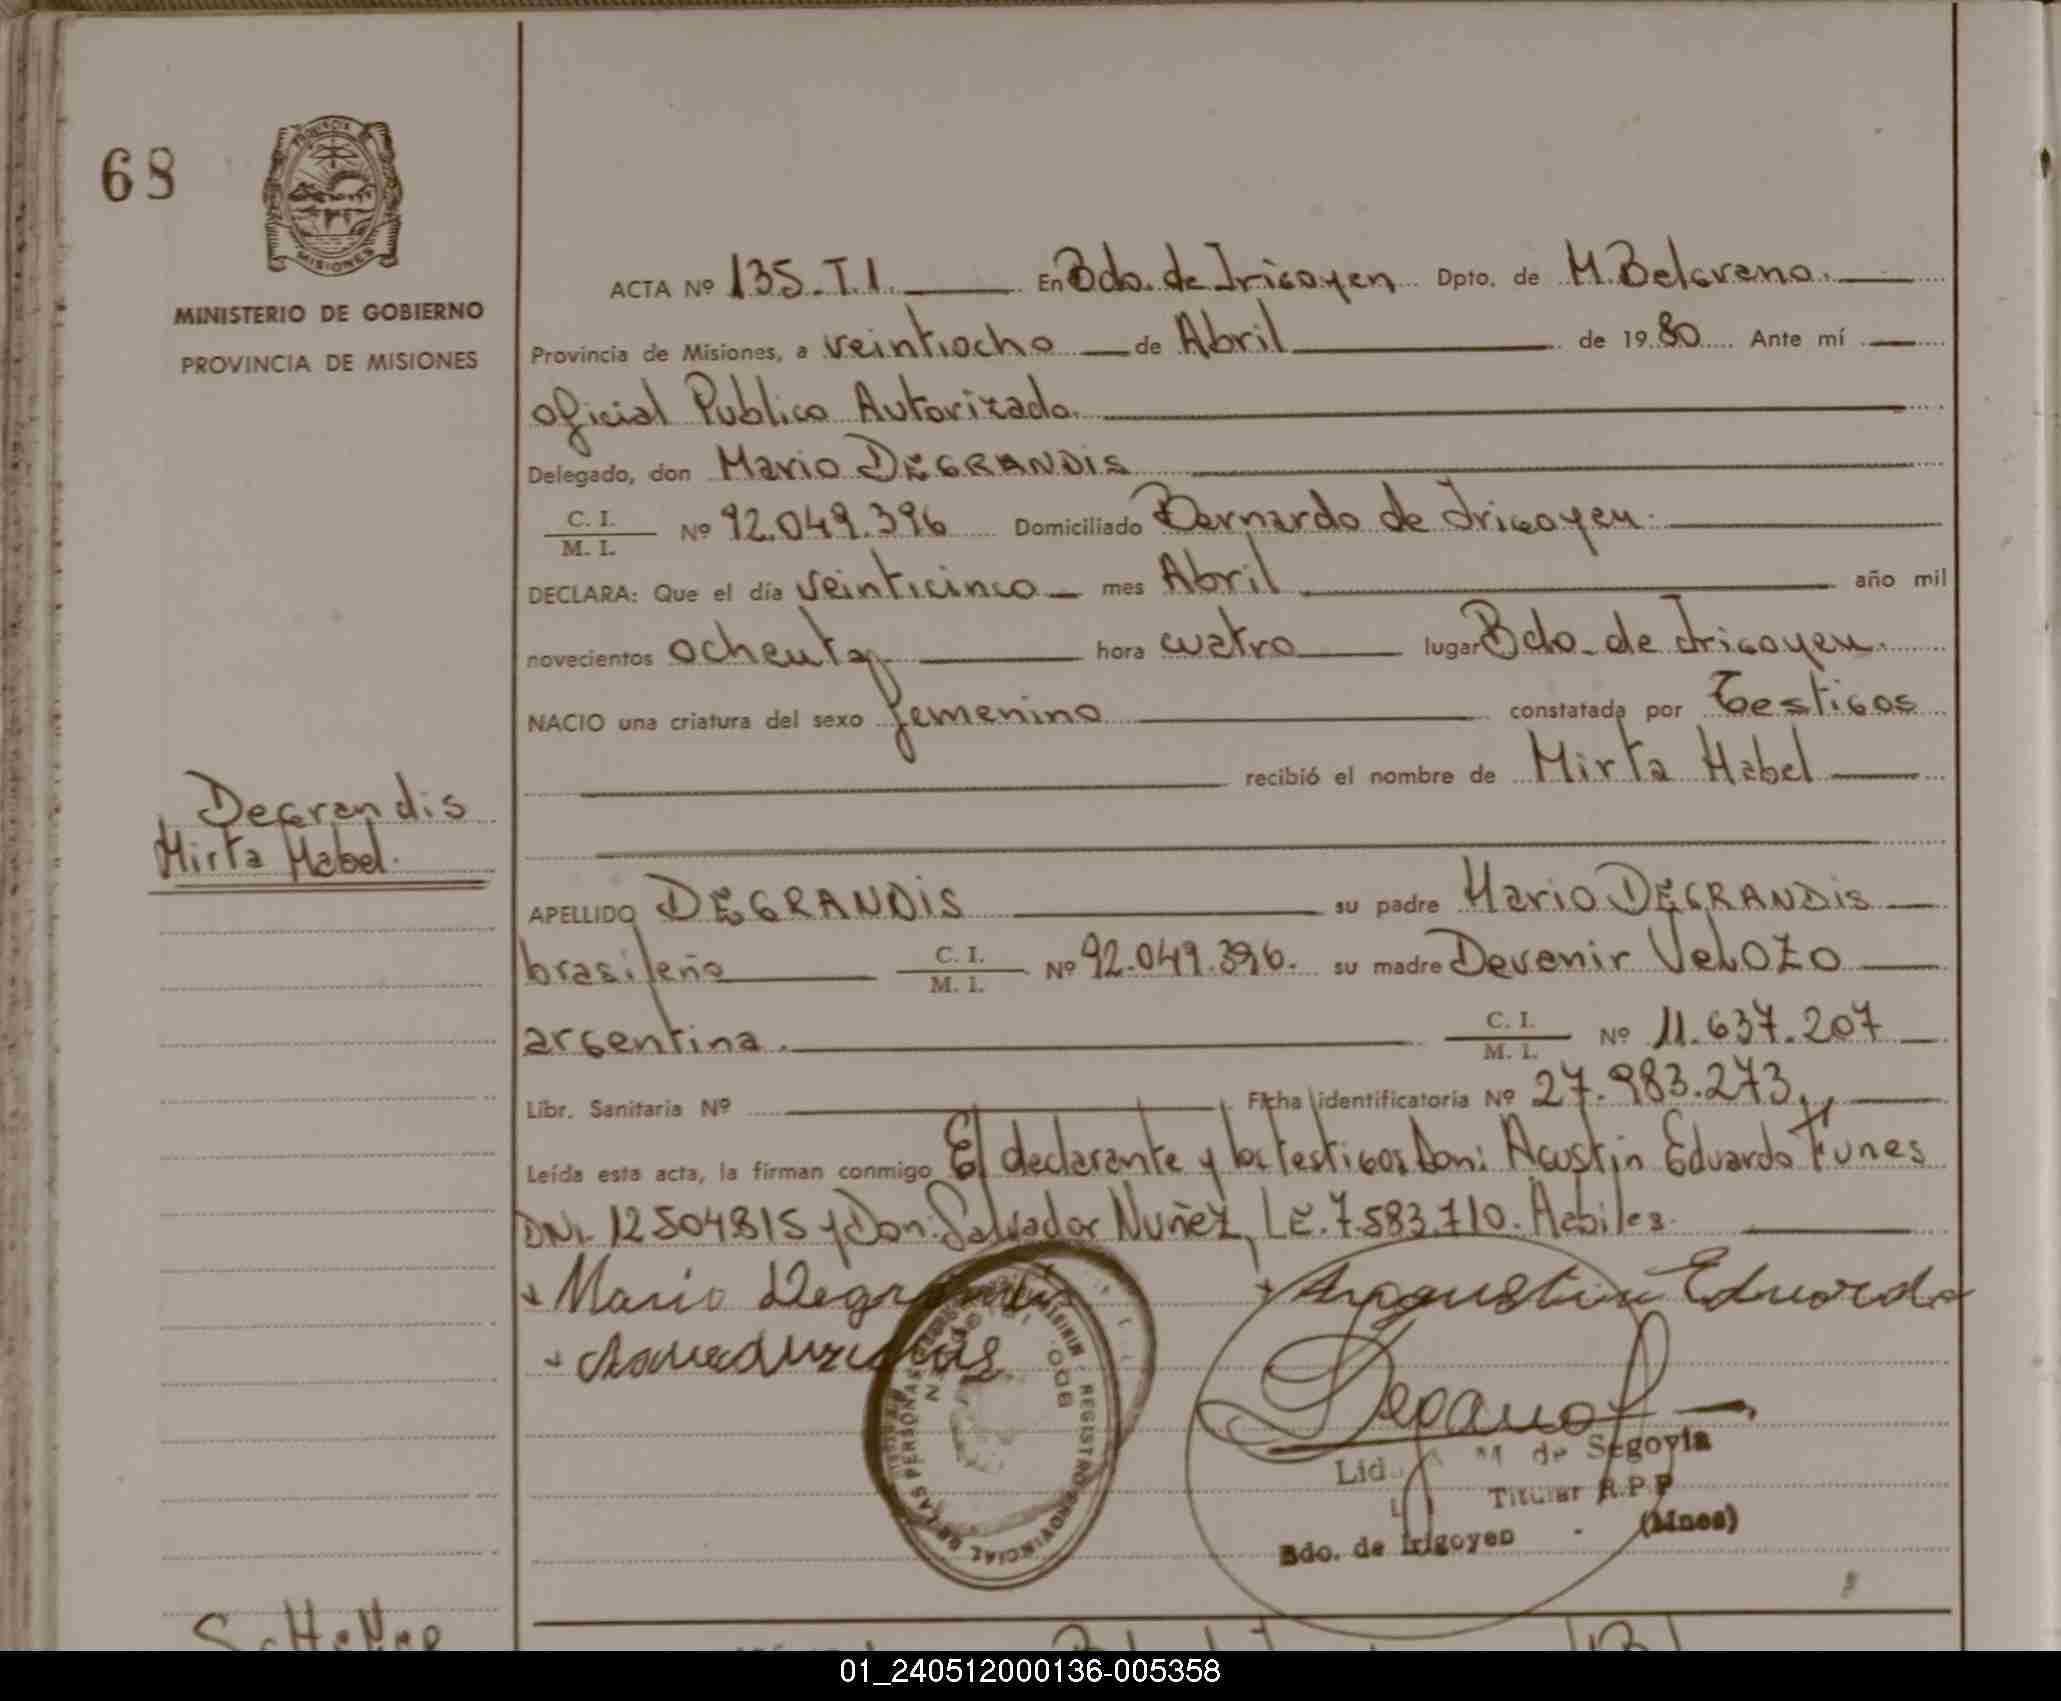 68
PROVINCIA DE
MISIONES
MINISTERIO DE GOBIERNO
PROVINCIA DE MISIONES
ACTA Nº 135. T. I. En Bdo. de Irigoyen Dpto. de M. Belgrano.
Provincia de Misiones, a veintiocho de Abril de 1980 Ante mí
oficial Publico Autorizado.
Delegado, don Mario DEGRANDIS
C. I.
M. I. Nº 92.049.396 Domiciliado Bernardo de Irigoyen.
DECLARA: Que el día veinticinco mes Abril año mil
novecientos ochenta hora cuatro lugar Bdo. de Irigoyen.
NACIO una criatura del sexo femenino constatada por Testigos
recibió el nombre de Mirta Mabel
Degrandis
Mirta Mabel.
APELLIDO DEGRANDIS su padre Mario DEGRANDIS
brasileño C. I.
M. I. Nº 92.049.396. su madre Devenir VELOZO
argentina. C. I.
M. I. Nº 11.637.207
Libr. Sanitaria Nº Ficha identificatoria Nº 27.983.273.
Leída esta acta, la firman conmigo El declarante y los testigos Don: Agustin Eduardo Funes
DNI. 12504815 y Don: Salvador Nuñez, LE. 7.583.710. Habiles.
Mario Degrandis
Angustin Eduardo
REGISTRO PROVINCIAL DE LAS PERSONAS
BDO.
Lid M de Segovia
Titular R.P.P
Bdo. de Irigoyen - (Mnes)
01_240512000136-005358